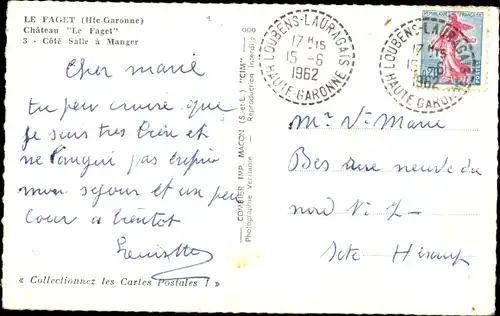 LE FAGET (Hte-Garonne)
Château "Le Faget"
3 - Côté Salle à Manger
Cher marie
tu peu croire que
je suis tres bien et
ne pas
mon sejour et un peu
a bientot
« Collectionnez les Cartes Postales ! »
COMBIER IMP. MACON (S.-et-L.) "CIM"
Photographie Véritable - Reproduction Interdite
LOUBENS-LAURAGAIS
17 H 15
15-6
1962
HAUTE GARONNE
LOUBENS-LAURAGAIS
17 H 15
15
1962
HAUTE GARONNE
0,20
POSTES
Mr Vr Marie
Bes rue neuve du
nord N° 7
Sete Herault